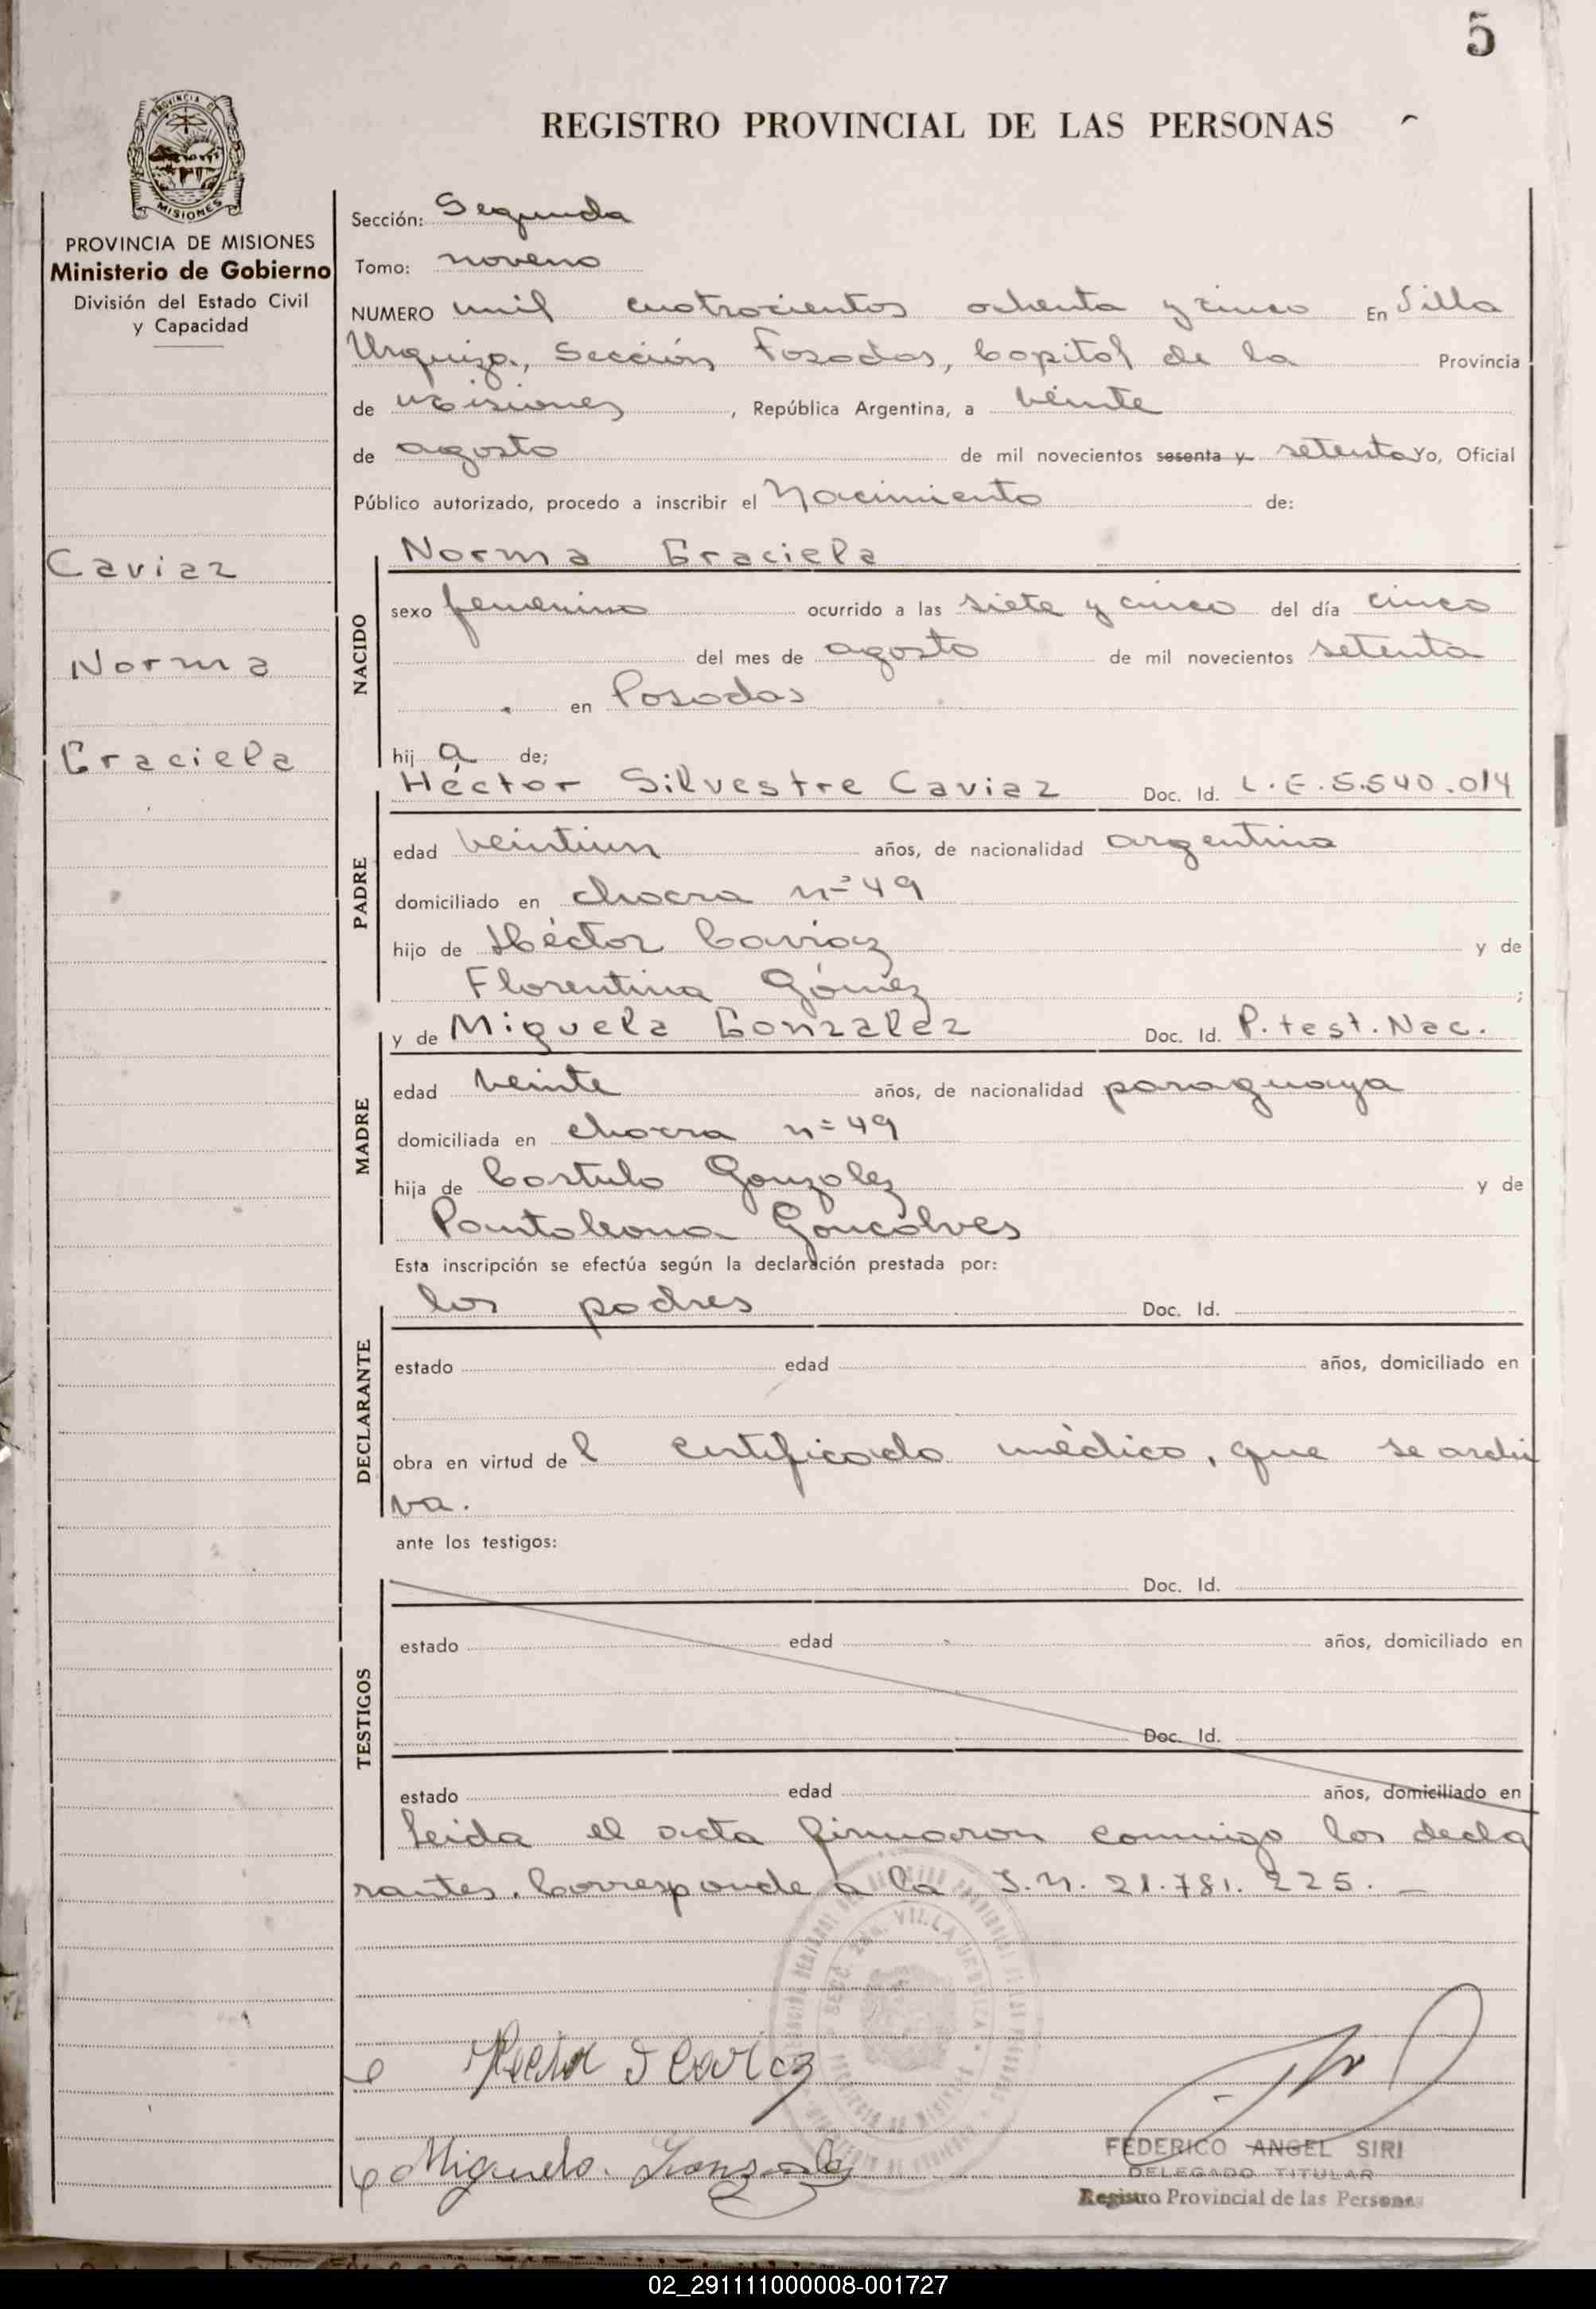 5
REGISTRO PROVINCIAL DE LAS PERSONAS
MISIONES
PROVINCIA DE MISIONES
Ministerio de Gobierno
División del Estado Civil
y Capacidad
Caviaz
Norma
Graciela
Sección: Segunda
Tomo: noveno
NUMERO mil cuatrocientos ochenta y cinco En Villa
Urquiza, Sección Posadas, Capital de la Provincia
de Misiones, República Argentina, a veinte
de agosto de mil novecientos sesenta y setenta Yo, Oficial
Público autorizado, procedo a inscribir el Nacimiento de:
NACIDO
Norma Graciela
sexo femenino ocurrido a las siete y cinco del día cinco
del mes de agosto de mil novecientos setenta
en Posadas
hij a de;
PADRE
Héctor Silvestre Caviaz Doc. Id. L.E.5.540.014
edad veintiun años, de nacionalidad argentina
domiciliado en chacra nº 49
hijo de Héctor Caviaz y de
Florentina Gómez ;
MADRE
y de Miguela Gonzalez Doc. Id. P. test. Nac.
edad veinte años, de nacionalidad paraguaya
domiciliada en chacra nº 49
hija de Castulo Gonzalez y de
Pantaleona Goncálves
Esta inscripción se efectúa según la declaración prestada por:
DECLARANTE
los padres Doc. Id.
estado edad años, domiciliado en
obra en virtud de l certificado médico, que se archi
va.
ante los testigos:
TESTIGOS
Doc. Id.
estado edad años, domiciliado en
Doc. Id.
estado edad años, domiciliado en
Leida el acta firmaron conmigo los decla
rantes. Corresponde a la I.N. 21.781.225. —
VILLA URQUIZA
Hector S Caviaz
Miguela. Gonzalez
FEDERICO ANGEL SIRI
DELEGADO TITULAR
Registro Provincial de las Personas
02_291111000008-001727